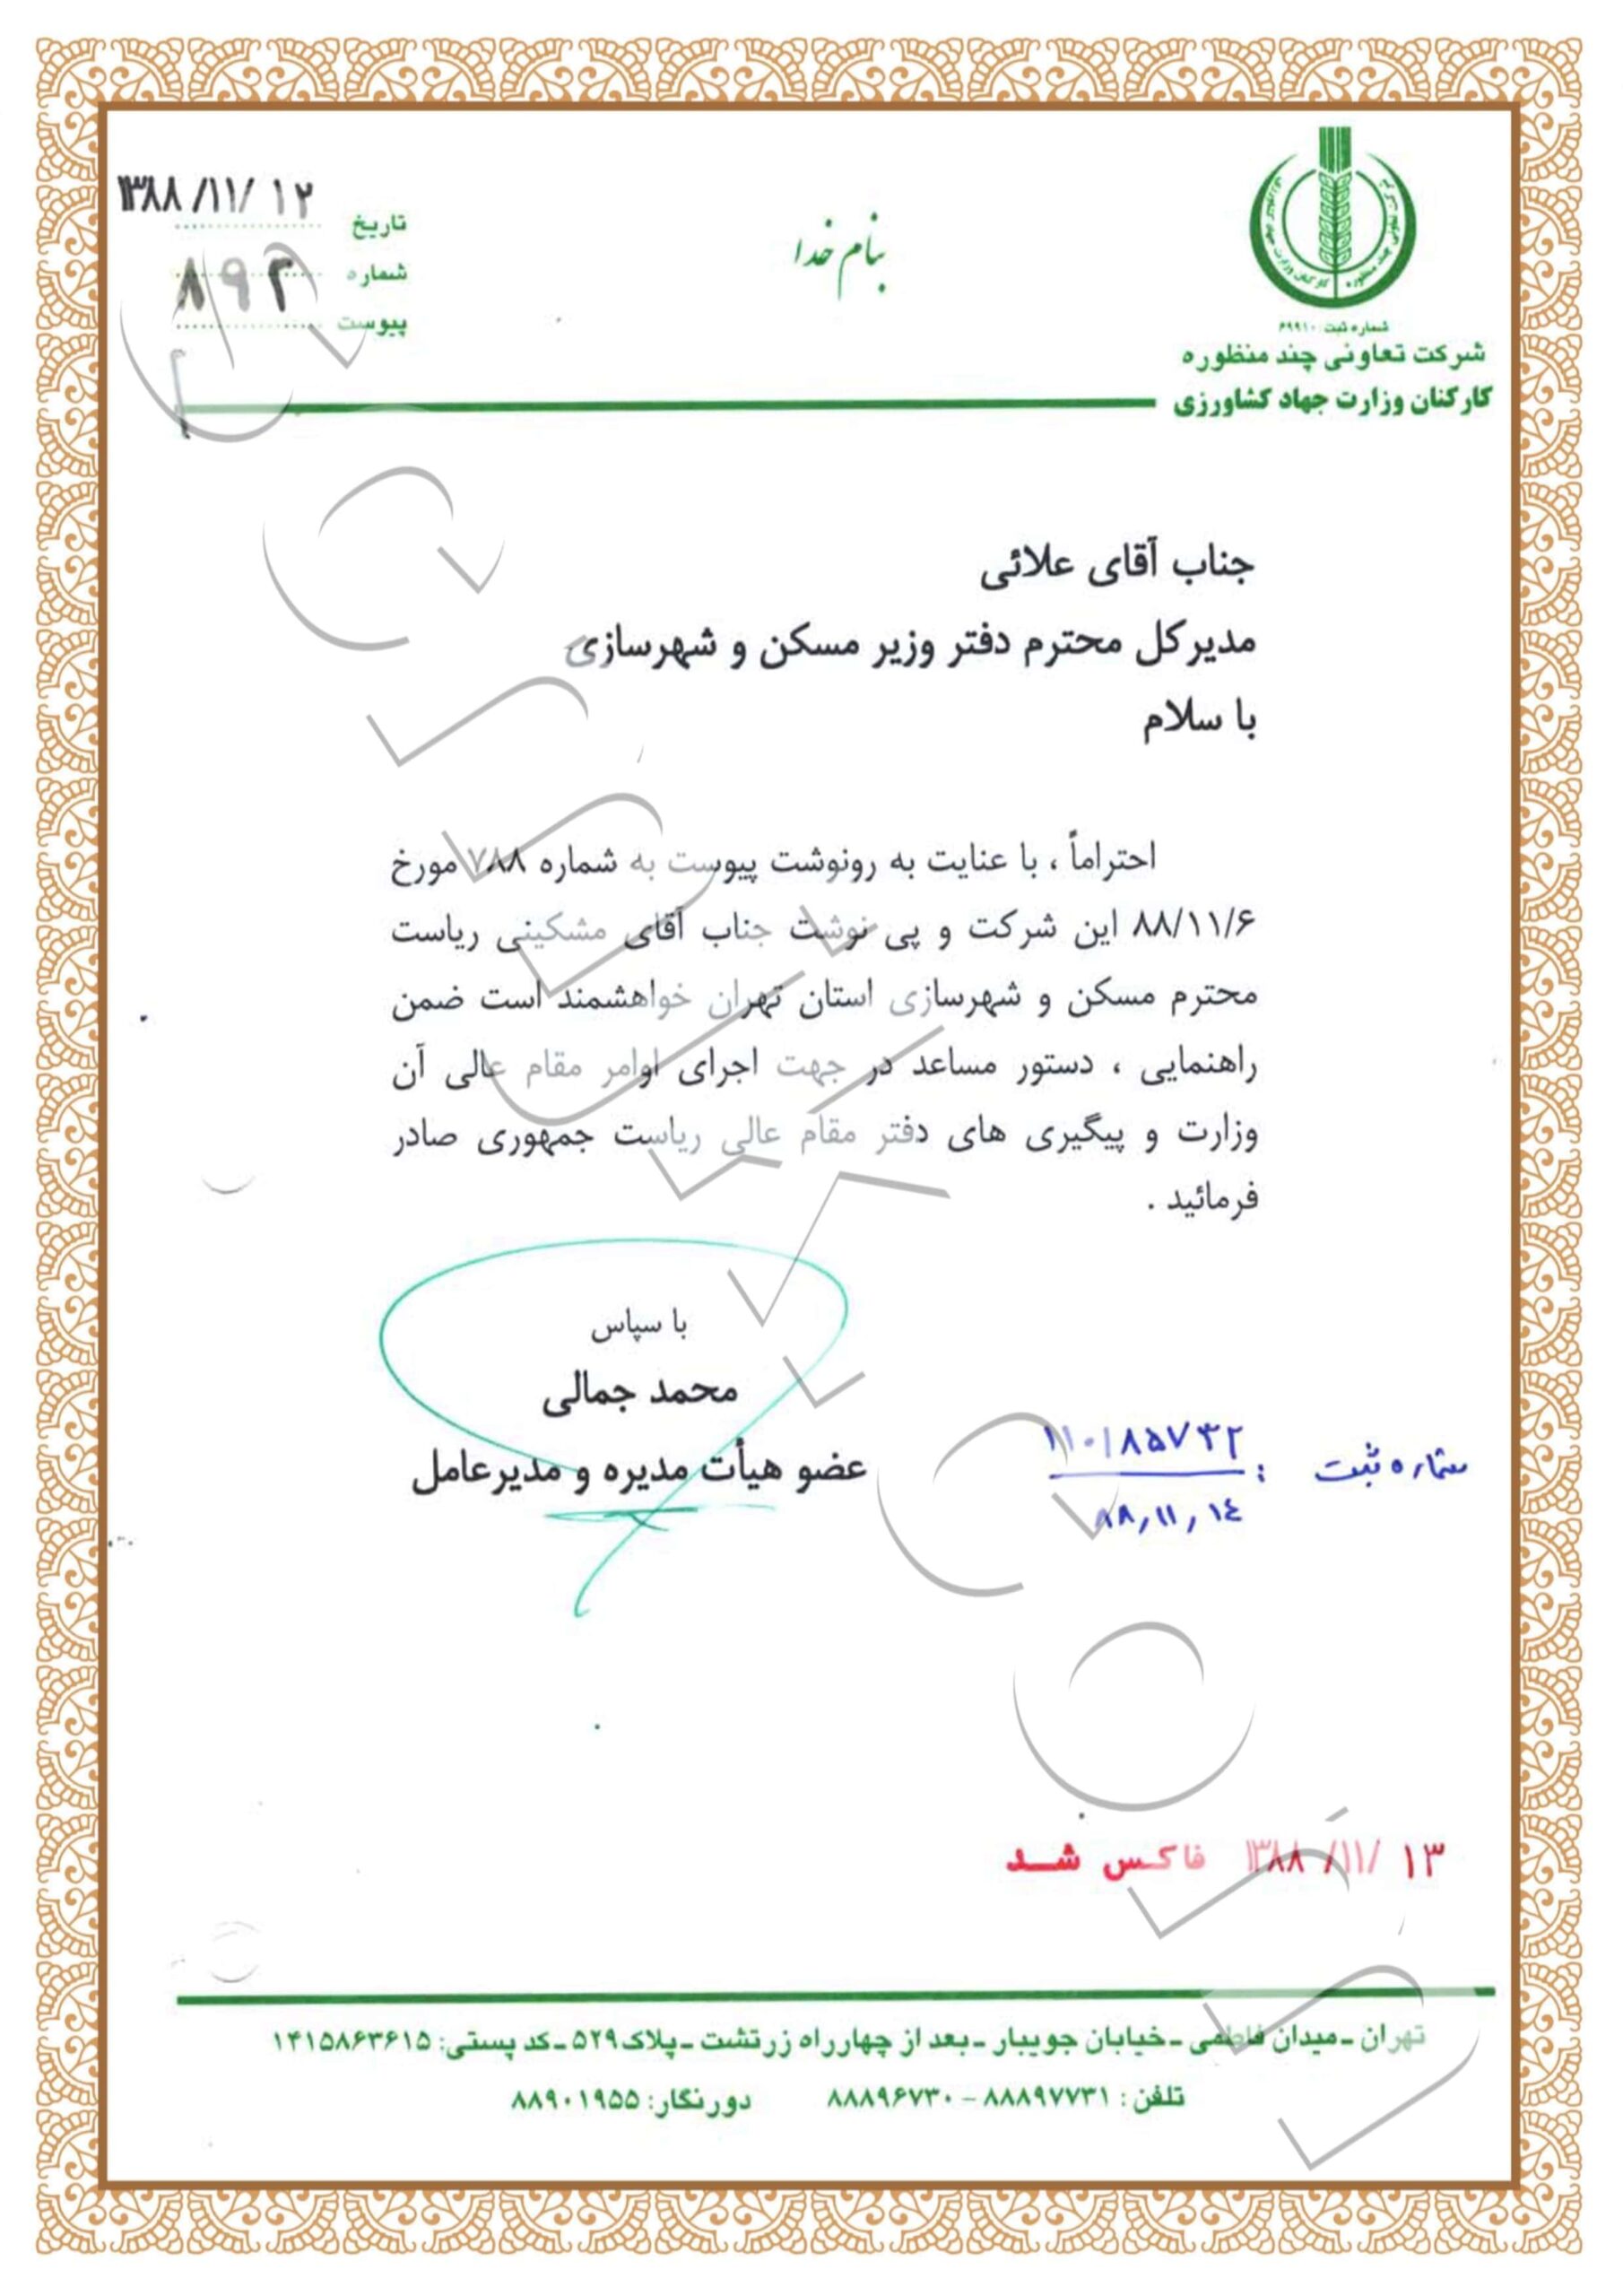 ۱۳۸۸/۱۱/۱۲
تاریخ
شماره ۸۹۲
پیوست
بنام خدا
شماره ثبت: ۶۹۹۱۰
شرکت تعاونی چند منظوره
کارکنان وزارت جهاد کشاورزی
جناب آقای علائی
مدیرکل محترم دفتر وزیر مسکن و شهرسازی
با سلام
احتراماً ، با عنایت به رونوشت پیوست به شماره ۷۸۸ مورخ
۸۸/۱۱/۶ این شرکت و پی نوشت جناب آقای مشکینی ریاست
محترم مسکن و شهرسازی استان تهران خواهشمند است ضمن
راهنمایی ، دستور مساعد در جهت اجرای اوامر مقام عالی آن
وزارت و پیگیری های دفتر مقام عالی ریاست جمهوری صادر
فرمائید .
با سپاس
محمد جمالی
عضو هیأت مدیره و مدیرعامل
شماره ثبت : ۱۱۰/۸۵۷۳۲
۸۸,۱۱,۱٤
۱۳۸۸/۱۱/۱۳ فاکس شد
تهران ـ میدان فاطمی ـ خیابان جویبار ـ بعد از چهارراه زرتشت ـ پلاک ۵۲۹ ـ کد پستی: ۱۴۱۵۸۶۳۶۱۵
تلفن : ۸۸۸۹۷۷۳۱ – ۸۸۸۹۶۷۳۰ دورنگار: ۸۸۹۰۱۹۵۵